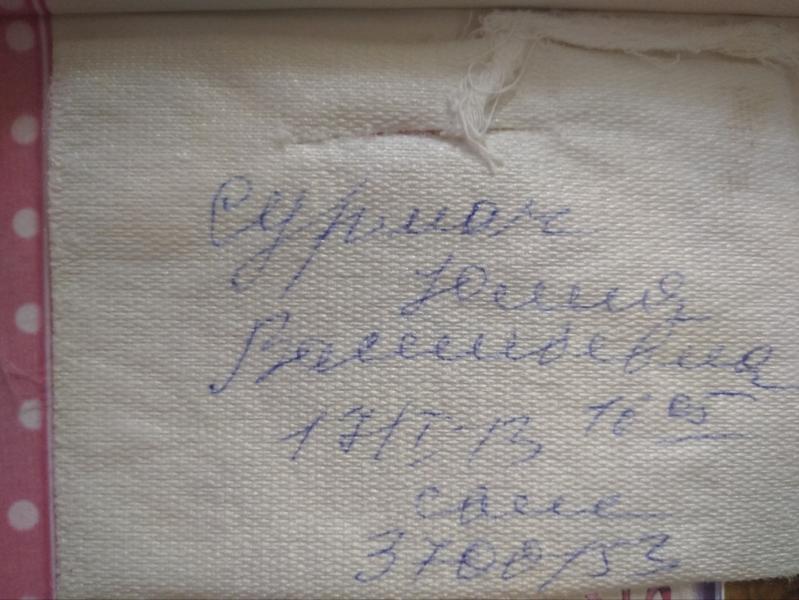 Сурмач
Юлия
Васильевна
17/I-13 16 05
3700/53